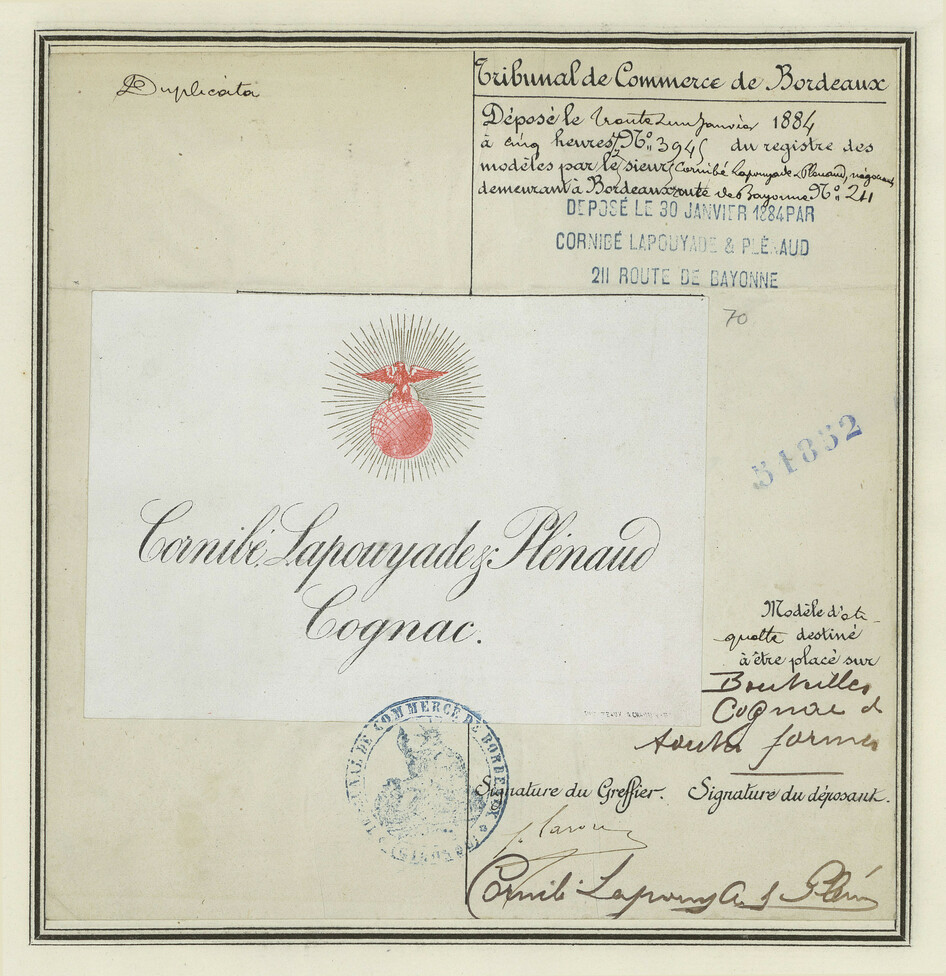 Duplicata
Tribunal de Commerce de Bordeaux
Déposé le trente un Janvier 1884
à cinq heures, N° 3945 du registre des
modèles par le sieur Cornibé Lapouyade & Plénaud, négociants
demeurant à Bordeaux route de Bayonne N° 211
DEPOSÉ LE 30 JANVIER 1884 PAR
CORNIBÉ LAPOUYADE & PLÉNAUD
211 ROUTE DE BAYONNE
70
Cornibé, Lapouyade & Plénaud
Cognac.
51832
Modèle d'éti-
quette destiné
à être placé sur
Bouteilles
Cognac de
toutes formes
TRIBUNAL DE COMMERCE DE BORDEAUX
Signature du Greffier. Signature du déposant.
Cornibé Lapouyade & Plénaud